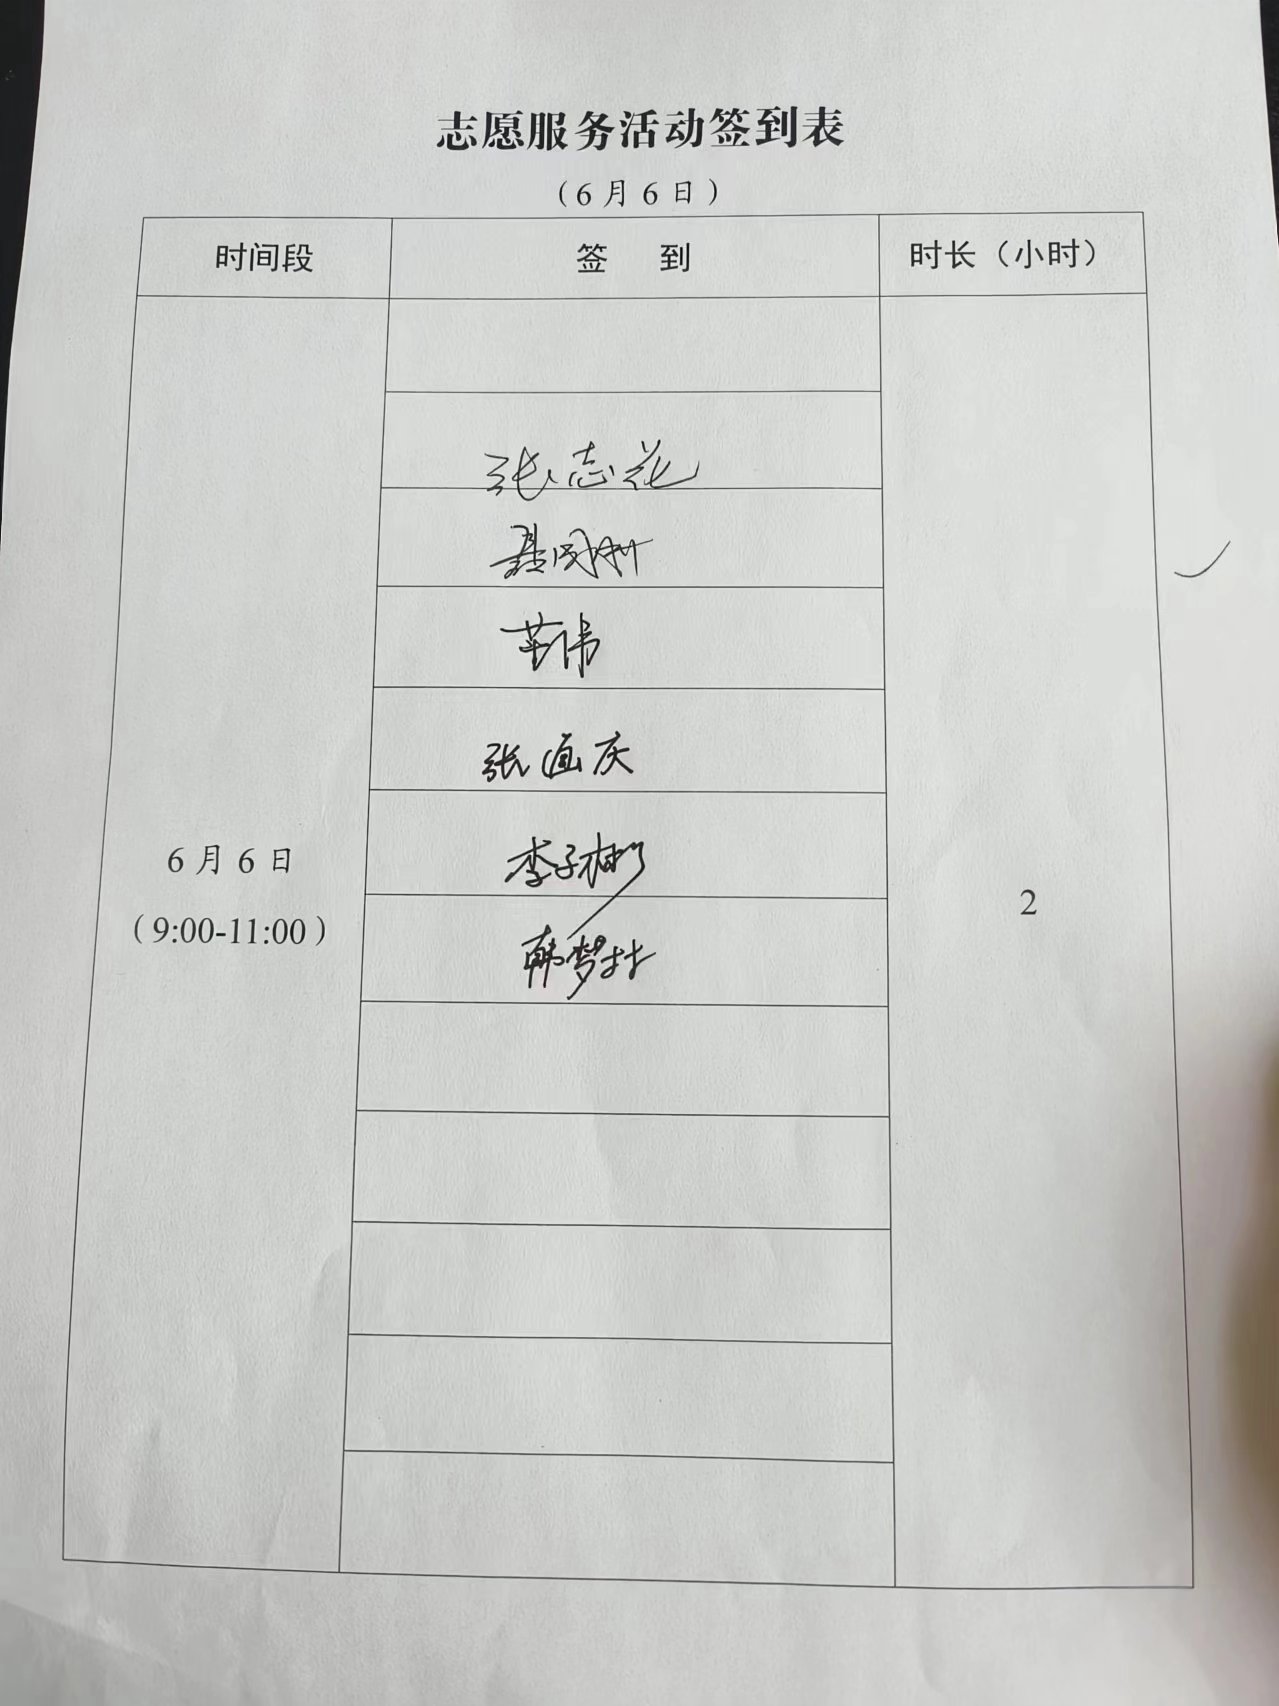 志愿服务活动签到表
（6月6日）
时间段 签 到 时长（小时）
张志花
韦伟
张通庆
李子彬
6月6日
（9:00-11:00）
2
韩梦